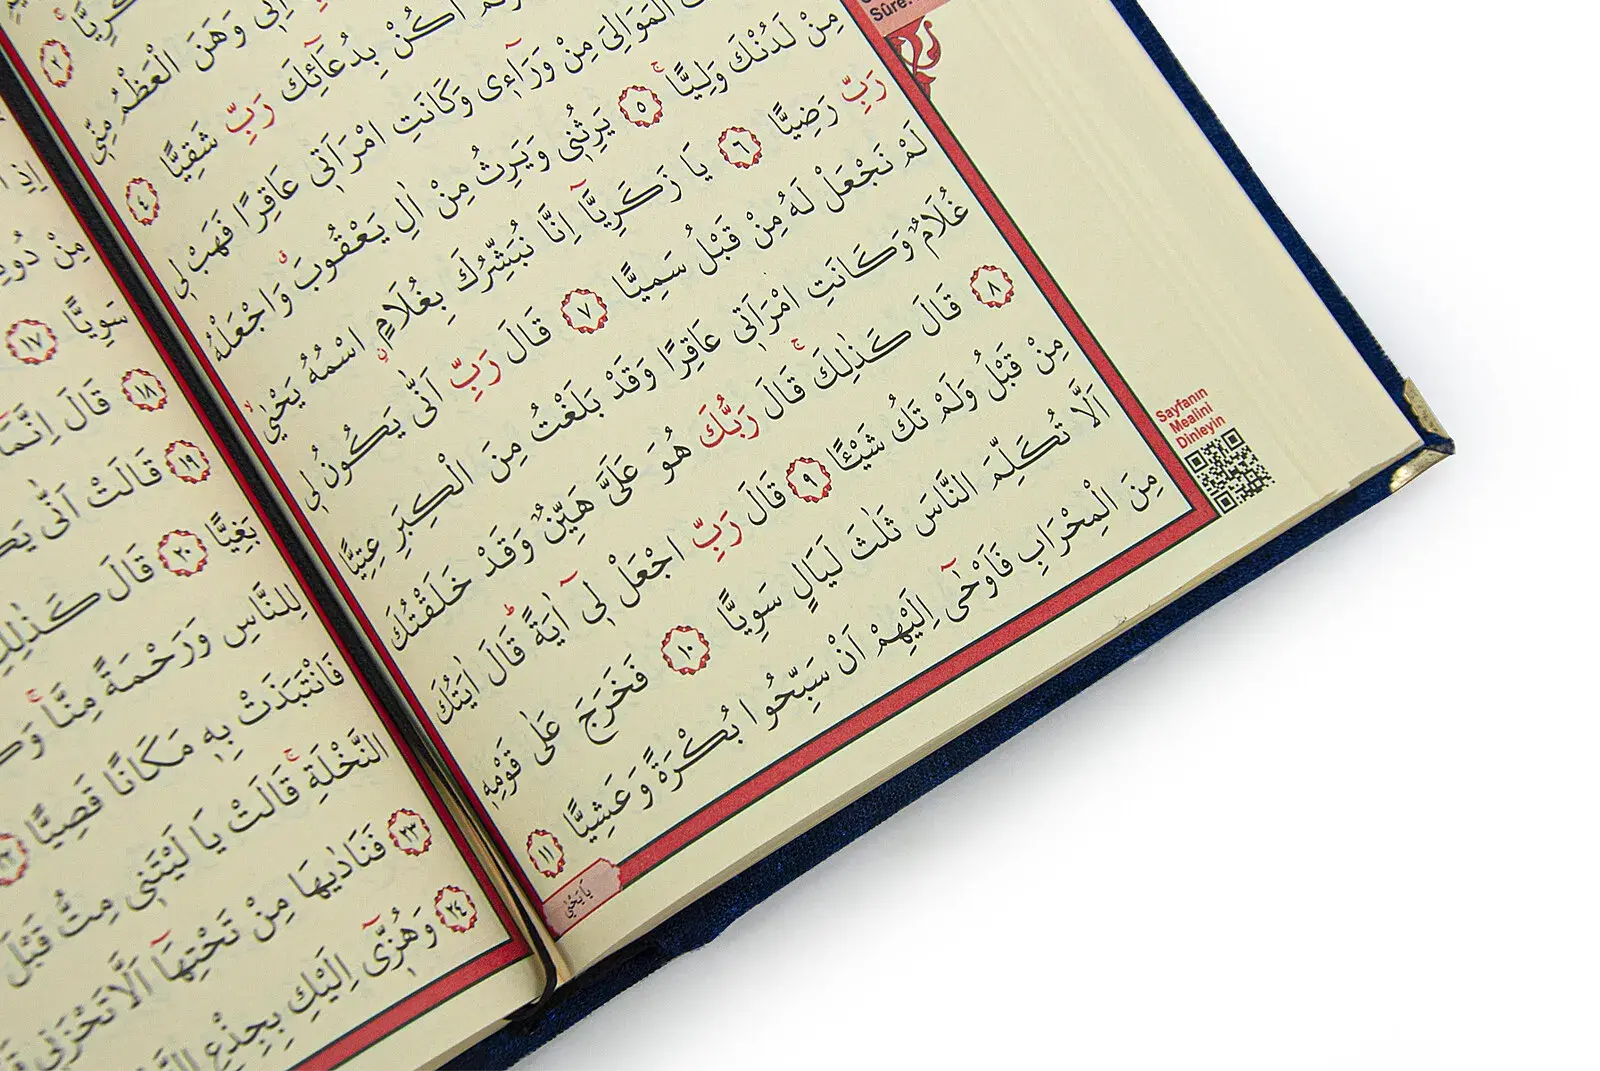 Sûre:
زَكَرِيَّا ﴿٢﴾
اِنّ۪ي وَهَنَ الْعَظْمُ مِنّ۪ي
اَكُنْ بِدُعَٓائِكَ رَبِّ شَقِيًّا ﴿٤﴾
الْمَوَالِيَ مِنْ وَرَٓاء۪ي وَكَانَتِ امْرَاَت۪ي عَاقِرًا فَهَبْ ل۪ي
مِنْ لَدُنْكَ وَلِيًّاۚ ﴿٥﴾ يَرِثُن۪ي وَيَرِثُ مِنْ اٰلِ يَعْقُوبَۗ وَاجْعَلْهُ
رَبِّ رَضِيًّا ﴿٦﴾ يَا زَكَرِيَّٓا اِنَّا نُبَشِّرُكَ بِغُلَامٍۨ اسْمُهُ يَحْيٰىۙ
لَمْ نَجْعَلْ لَهُ مِنْ قَبْلُ سَمِيًّا ﴿٧﴾ قَالَ رَبِّ اَنّٰى يَكُونُ ل۪ي
غُلَامٌ وَكَانَتِ امْرَاَت۪ي عَاقِرًا وَقَدْ بَلَغْتُ مِنَ الْكِبَرِ عِتِيًّا
﴿٨﴾ قَالَ كَذٰلِكَۚ قَالَ رَبُّكَ هُوَ عَلَيَّ هَيِّنٌ وَقَدْ خَلَقْتُكَ
مِنْ قَبْلُ وَلَمْ تَكُ شَيْـًٔا ﴿٩﴾ قَالَ رَبِّ اجْعَلْ ل۪ٓي اٰيَةًۜ قَالَ اٰيَتُكَ
اَلَّا تُكَلِّمَ النَّاسَ ثَلٰثَ لَيَالٍ سَوِيًّا ﴿١٠﴾ فَخَرَجَ عَلٰى قَوْمِه۪
مِنَ الْمِحْرَابِ فَاَوْحٰٓى اِلَيْهِمْ اَنْ سَبِّحُوا بُكْرَةً وَعَشِيًّا ﴿١١﴾
يَا يَحْيٰى
Sayfanın
Mealini
Dinleyin
اِذِ
مِنْ
سَوِيًّا ﴿١٧﴾
﴿١٨﴾ قَالَ اِنَّمَٓا
﴿١٩﴾ قَالَتْ اَنّٰى
بَغِيًّا ﴿٢٠﴾ قَالَ كَذٰلِكِ
لِلنَّاسِ وَرَحْمَةً مِنَّاۚ
فَانْتَبَذَتْ بِه۪ مَكَانًا قَصِيًّا
النَّخْلَةِۚ قَالَتْ يَا لَيْتَن۪ي مِتُّ قَبْلَ
﴿٢٣﴾ فَنَادٰيهَا مِنْ تَحْتِهَٓا اَلَّا تَحْزَن۪ي
﴿٢٤﴾ وَهُزّ۪ٓي اِلَيْكِ بِجِذْعِ